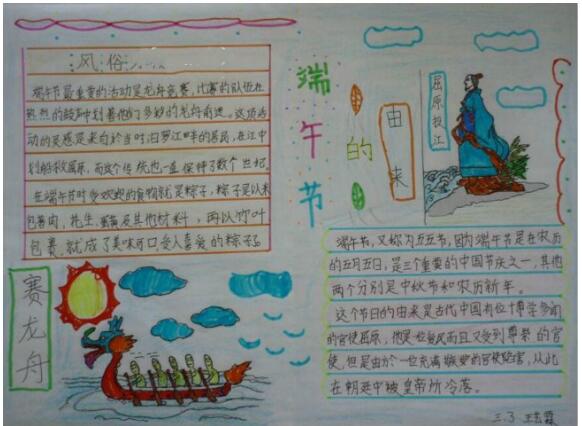 风俗……
端午节最重要的活动是龙舟竞赛,比赛的队伍在
热烈的鼓声中划着他们多彩的龙舟前进。这项活
动的灵感是来自於当时汨罗江畔的居民,在江中
划船救屈原,而这个传统也一直保持了数个世纪。
在端午节时受欢迎的食物就是粽子,粽子是以米
包着肉、花生、蛋黄及其他材料,再以竹叶
包裹,就成了美味可口,受人喜爱的粽子。
赛龙舟
端午节
的
由来
屈原投江
端午节,又称为五五节,因为端午节是在农历
的五月五日,是三个重要的中国节庆之一,其他
两个分别是中秋节和农历新年。
这个节日的由来是古代中国有位博学多闻
的官使屈原,他是一位爱民而且又受到尊崇的官
使,但是由於一位充满嫉妒的官使陷害,从此
在朝廷中被皇帝所冷落。
三.3